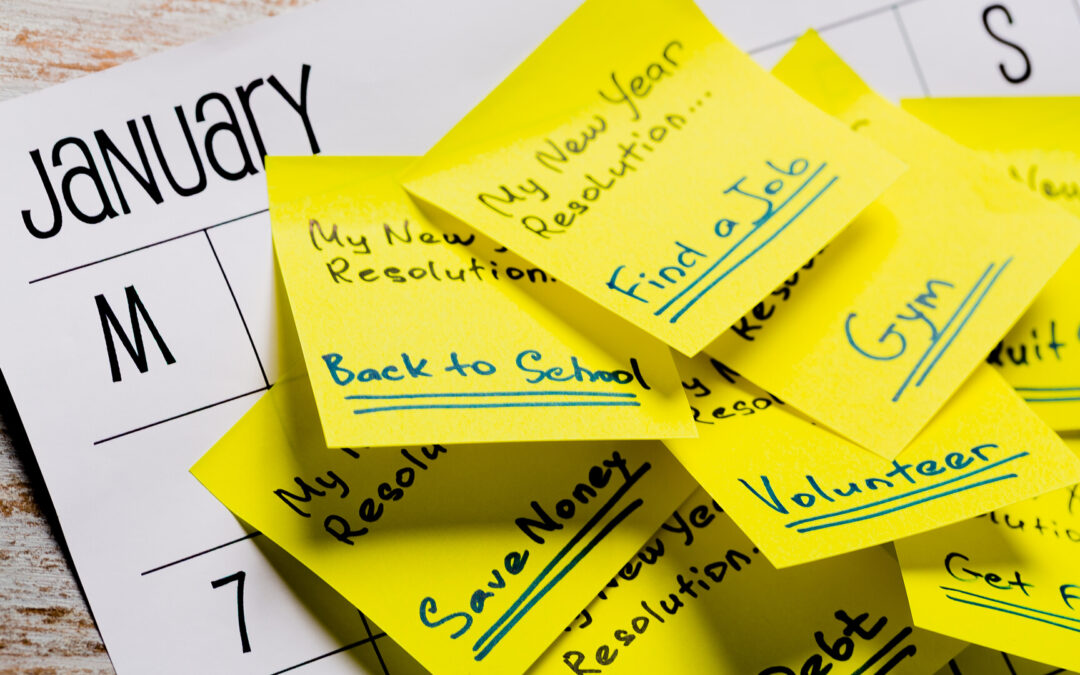 JaNUarY
S
M
7
My New Year
Resolution...
Find a Job
My New
Resolution.
Back to School
Gym
New
Quit
My
Resolu
Save Noney
Resol
Volunteer
New Year
Resolution..
Debt
lution
Get